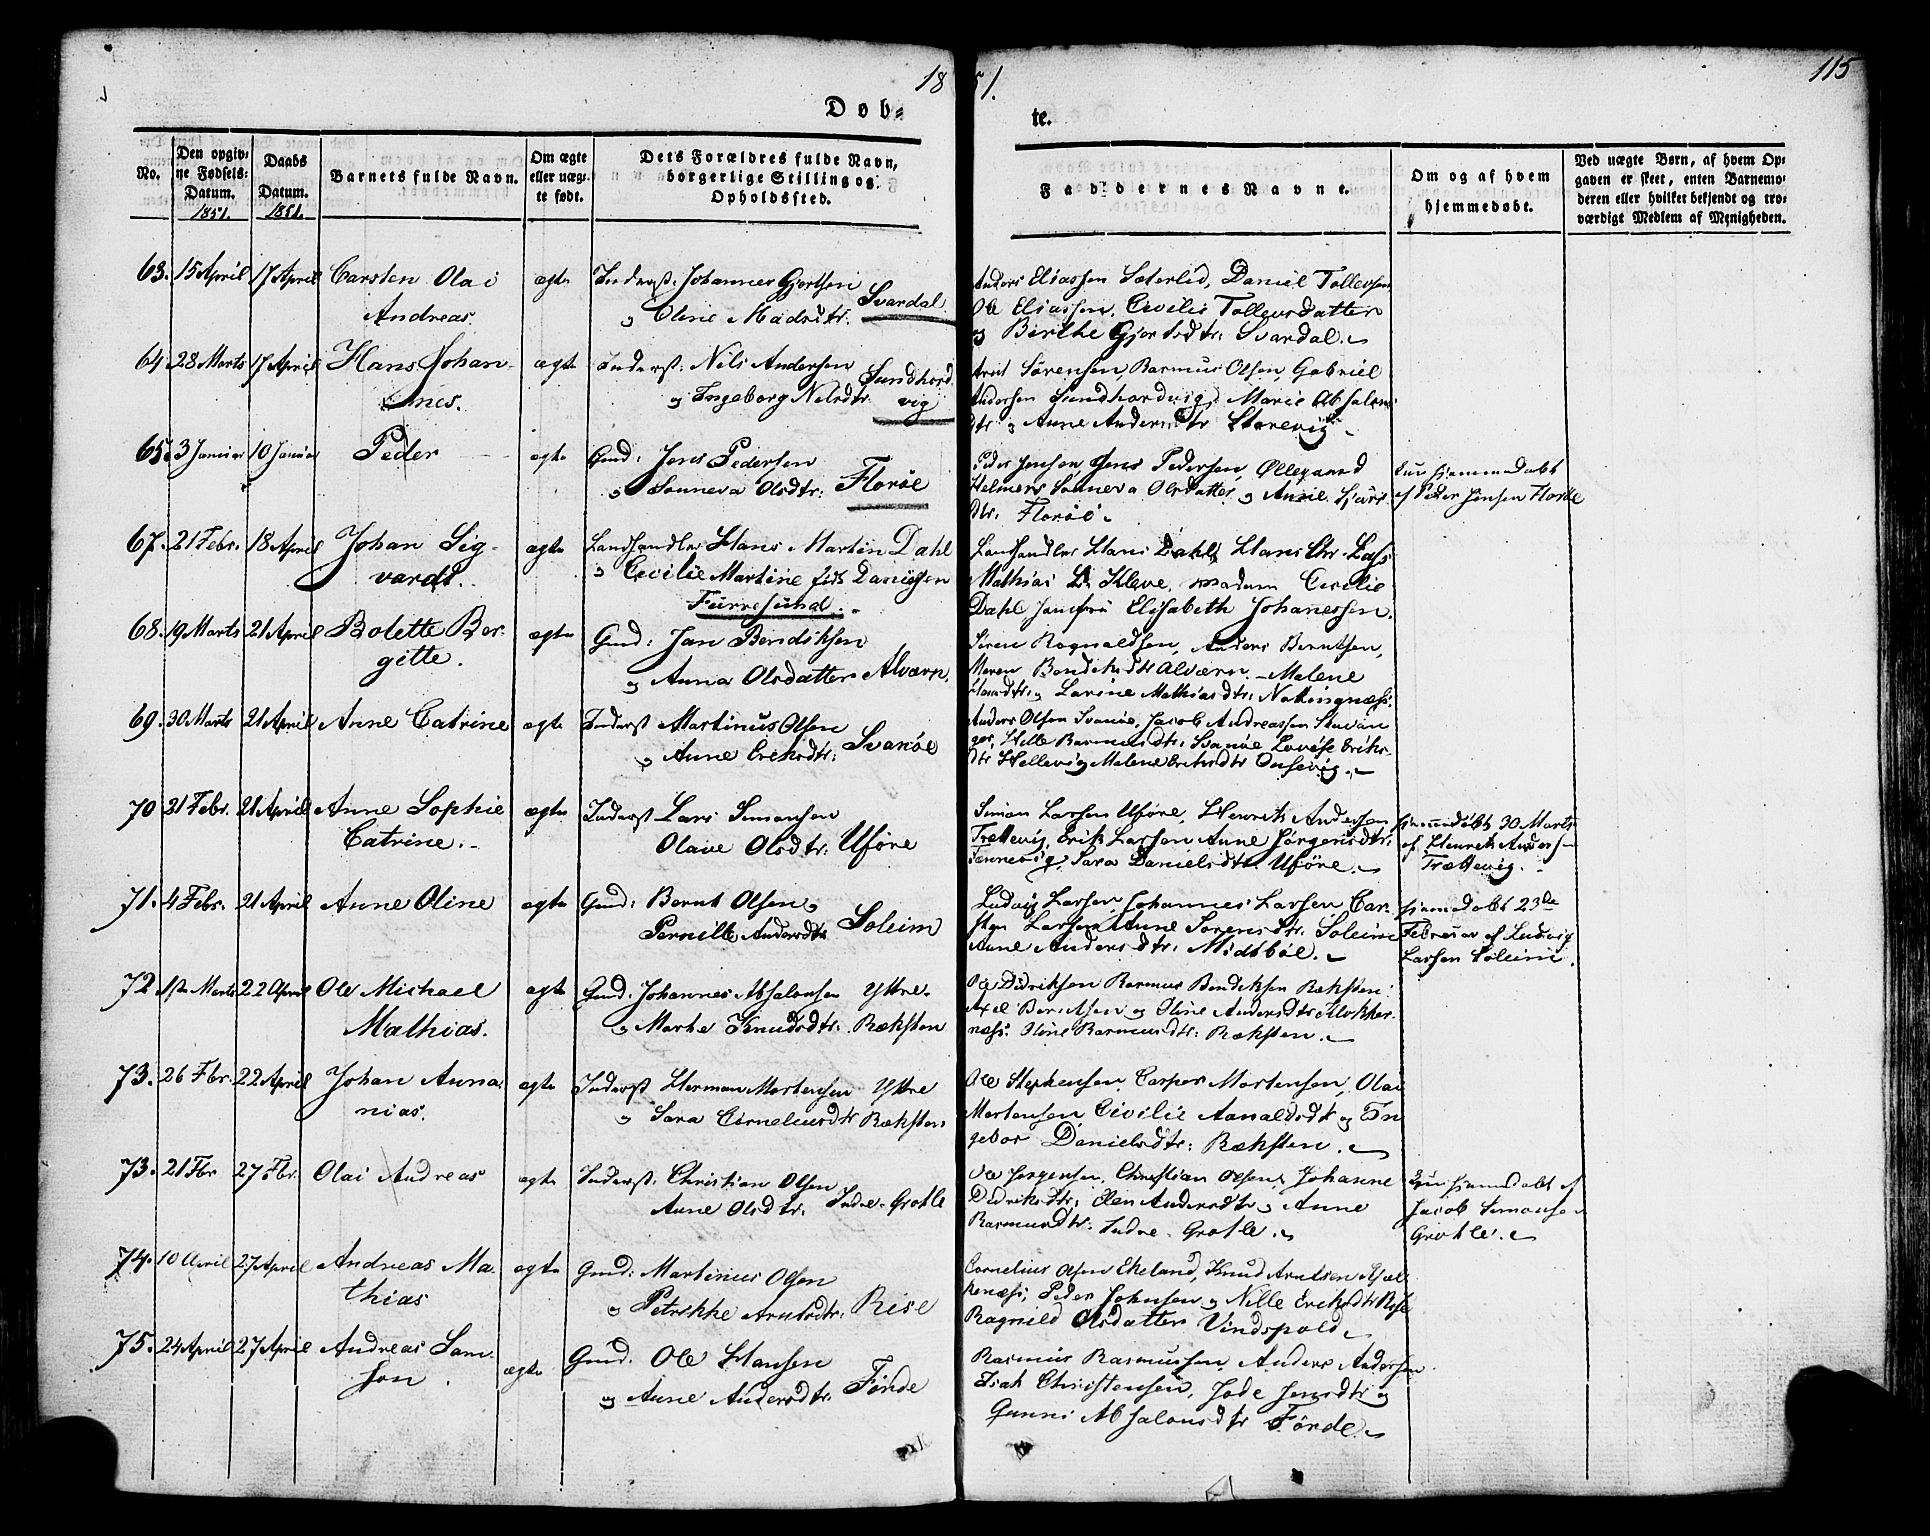 18
51.
115
Døb=
te.
No.
Den opgiv=
ne Fødsels=
Datum.
1851.
Daabs
Datum.
1851.
Barnets fulde Navn.
Om ægte
eller uæg=
te født.
Dets Forældres fulde Navn,
borgerlige Stilling og
Opholdssted.
Faddernes Navne.
Om og af hvem
hjemmedøbt.
Ved uægte Børn, af hvem Op=
gaven er skeet, enten Barnemo=
deren eller hvilket bekjendt og tro=
værdigt Medlem af Menigheden.
63. 15 April 17 April Carsten Olai ægte Inderst: Johannes Gjertsen
Andreas. og Oline Madsdtr. Svardal.
Anders Eliassen Sæterlid, Daniel Tollevsen
Ole Eliassen, Cecilie Tollevsdatter
og Birthe Gjertsdtr: Svardal.
64. 28 Marts 17 April Hans Johan- ægte Inderst: Nils Andersen
nes. og Ingeborg Nilsdtr. Sundhord
vig
Arnt Sørensen, Rasmus Olsen, Gabriel
Andersen Sundhordvig, Marie Absalons
dtr og Anne Andersdtr Storevig
65. 3 Januar 10 Januar Peder ægte Gmd: Jens Pedersen
og Sonneva Olsdtr: Florøe
Peder Jensen, Jens Pedersen, Øllegaard
Helmers Sonneva Olsdatter og Anne
dtr. Florøe.
hjemmedøbt
af Peder Jensen Florøe
67. 21 Febr. 18 April Johan Sig- ægte Landhandler Hans Martin Dahl
vardt. og Cecilie Martine født Danielsen
Furresund.
Landhandler Hans Dahl, Hans Chr.
Mathias D. Kleve, Madam Cecilie
Dahl Jomfru Elisabeth Johanessen.
68. 19 Marts 21 April Bolette Ber- ægte Gmd: Jan Bendiksen
gitte. og Anna Olsdatter Alværn.
Søren Rognaldsen, Anders Berntsen,
Maren Bendiksdtr Alværn. Malene
Hansdtr: og Lavine Mathiasdtr: Nottingnæss.
69. 30 Marts 21 April Anne Catrine ægte Inderst Martinus Olsen
og Anne Eriksdtr: Svanøe
Anders Olsen Svanøe, Jacob Andreassen Stavan
ger, Helle Rasmusdtr: Svanøe Lovise Eriks
dtr Hellevig Malene Eriksdtr Ousevig.
70 21 Febr. 21 April Anne Sophie ægte Inderst Lars Simonsen
Catrine. Olave Olsdtr: Uføre
Simon Larsen Uføre, Henrik Andersen
Trættevig, Erik Larsen Anne Jørgensdtr:
Tennevig, Sara Danielsdtr Uføre.
hjemmedøbt 30 Marts
af Henrik Anders-
Trættevig.
71. 4 Febr. 21 April Anne Oline ægte Gmd: Bernt Olsen og
Pernille Andersdtr Soleim
Ludvig Larsen, Johannes Larsen Car-
sten Larsen Anne Sørensdtr. Soleim
Anne Andersdtr: Midtbøe.
hjemmedøbt 23de
Februar af Ludvig
Larsen Soleim.
72 1ste Marts 22 April Ole Michael ægte Gmd: Johannes Absalonsen Yttre
Mathias. og Marte Knudsdtr: Ræksten
Ole Didriksen Rasmus Bendiksen Ræksten
Axel Berntsen og Oline Andersdtr Klokker-
næss. Oline Rasmusdtr: Ræksten.
73. 26 Fbr. 22 April Johan Anna- ægte Inderst Herman Mortensen Yttre
nias. og Sara Corneliusdtr Ræksten
Ole Stephensen, Casper Mortensen, Olai
Mortensen Cicilie Aanaldsdtr og In
gebor Danielsdtr: Ræksten.
73. 21 Fbr 27 Fbr. Olai Andreas ægte Inderst: Christian Olsen
Anne Olsdtr. Indre-Grotle
Ole Jørgensen, Christian Olsen, Johanne
Didriksdtr: Elen Andersdtr og Anne
Rasmusdtr: Indre-Grotle.
hjemmedøbt af
Jacob Simonsen
Grotle.
74. 10 April 27 April Andreas Ma- ægte Gmd: Martinus Olsen
thias og Petrikke Arntsdtr: Rise
Cornelius Olsen Ekeland, Knud Arntsen
kenæss, Peder Johnsen og Nille Eriksdtr Rise
Ragnild Olsdatter Vindspold
75. 24 April 27 April Andreas Sam- ægte Gmd. Ole Hansen
son. og Anne Andersdtr. Førde
Rasmus Rasmussen, Anders Andersen
Isak Christensen, Jensdtr og
Gunni Absalonsdtr Førde.